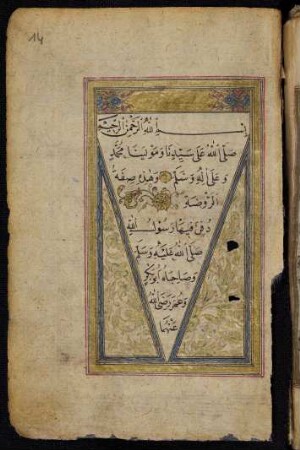 14
بسم الله الرحمن الرحيم
صلى الله على سيدنا ومولينا محمد
وعلى اله وسلم وهذه صفة
الروضة
دفن فيها رسول الله
صلى الله عليه وسلم
وصاحباه أبو بكر
وعمر رضى الله
عنهما